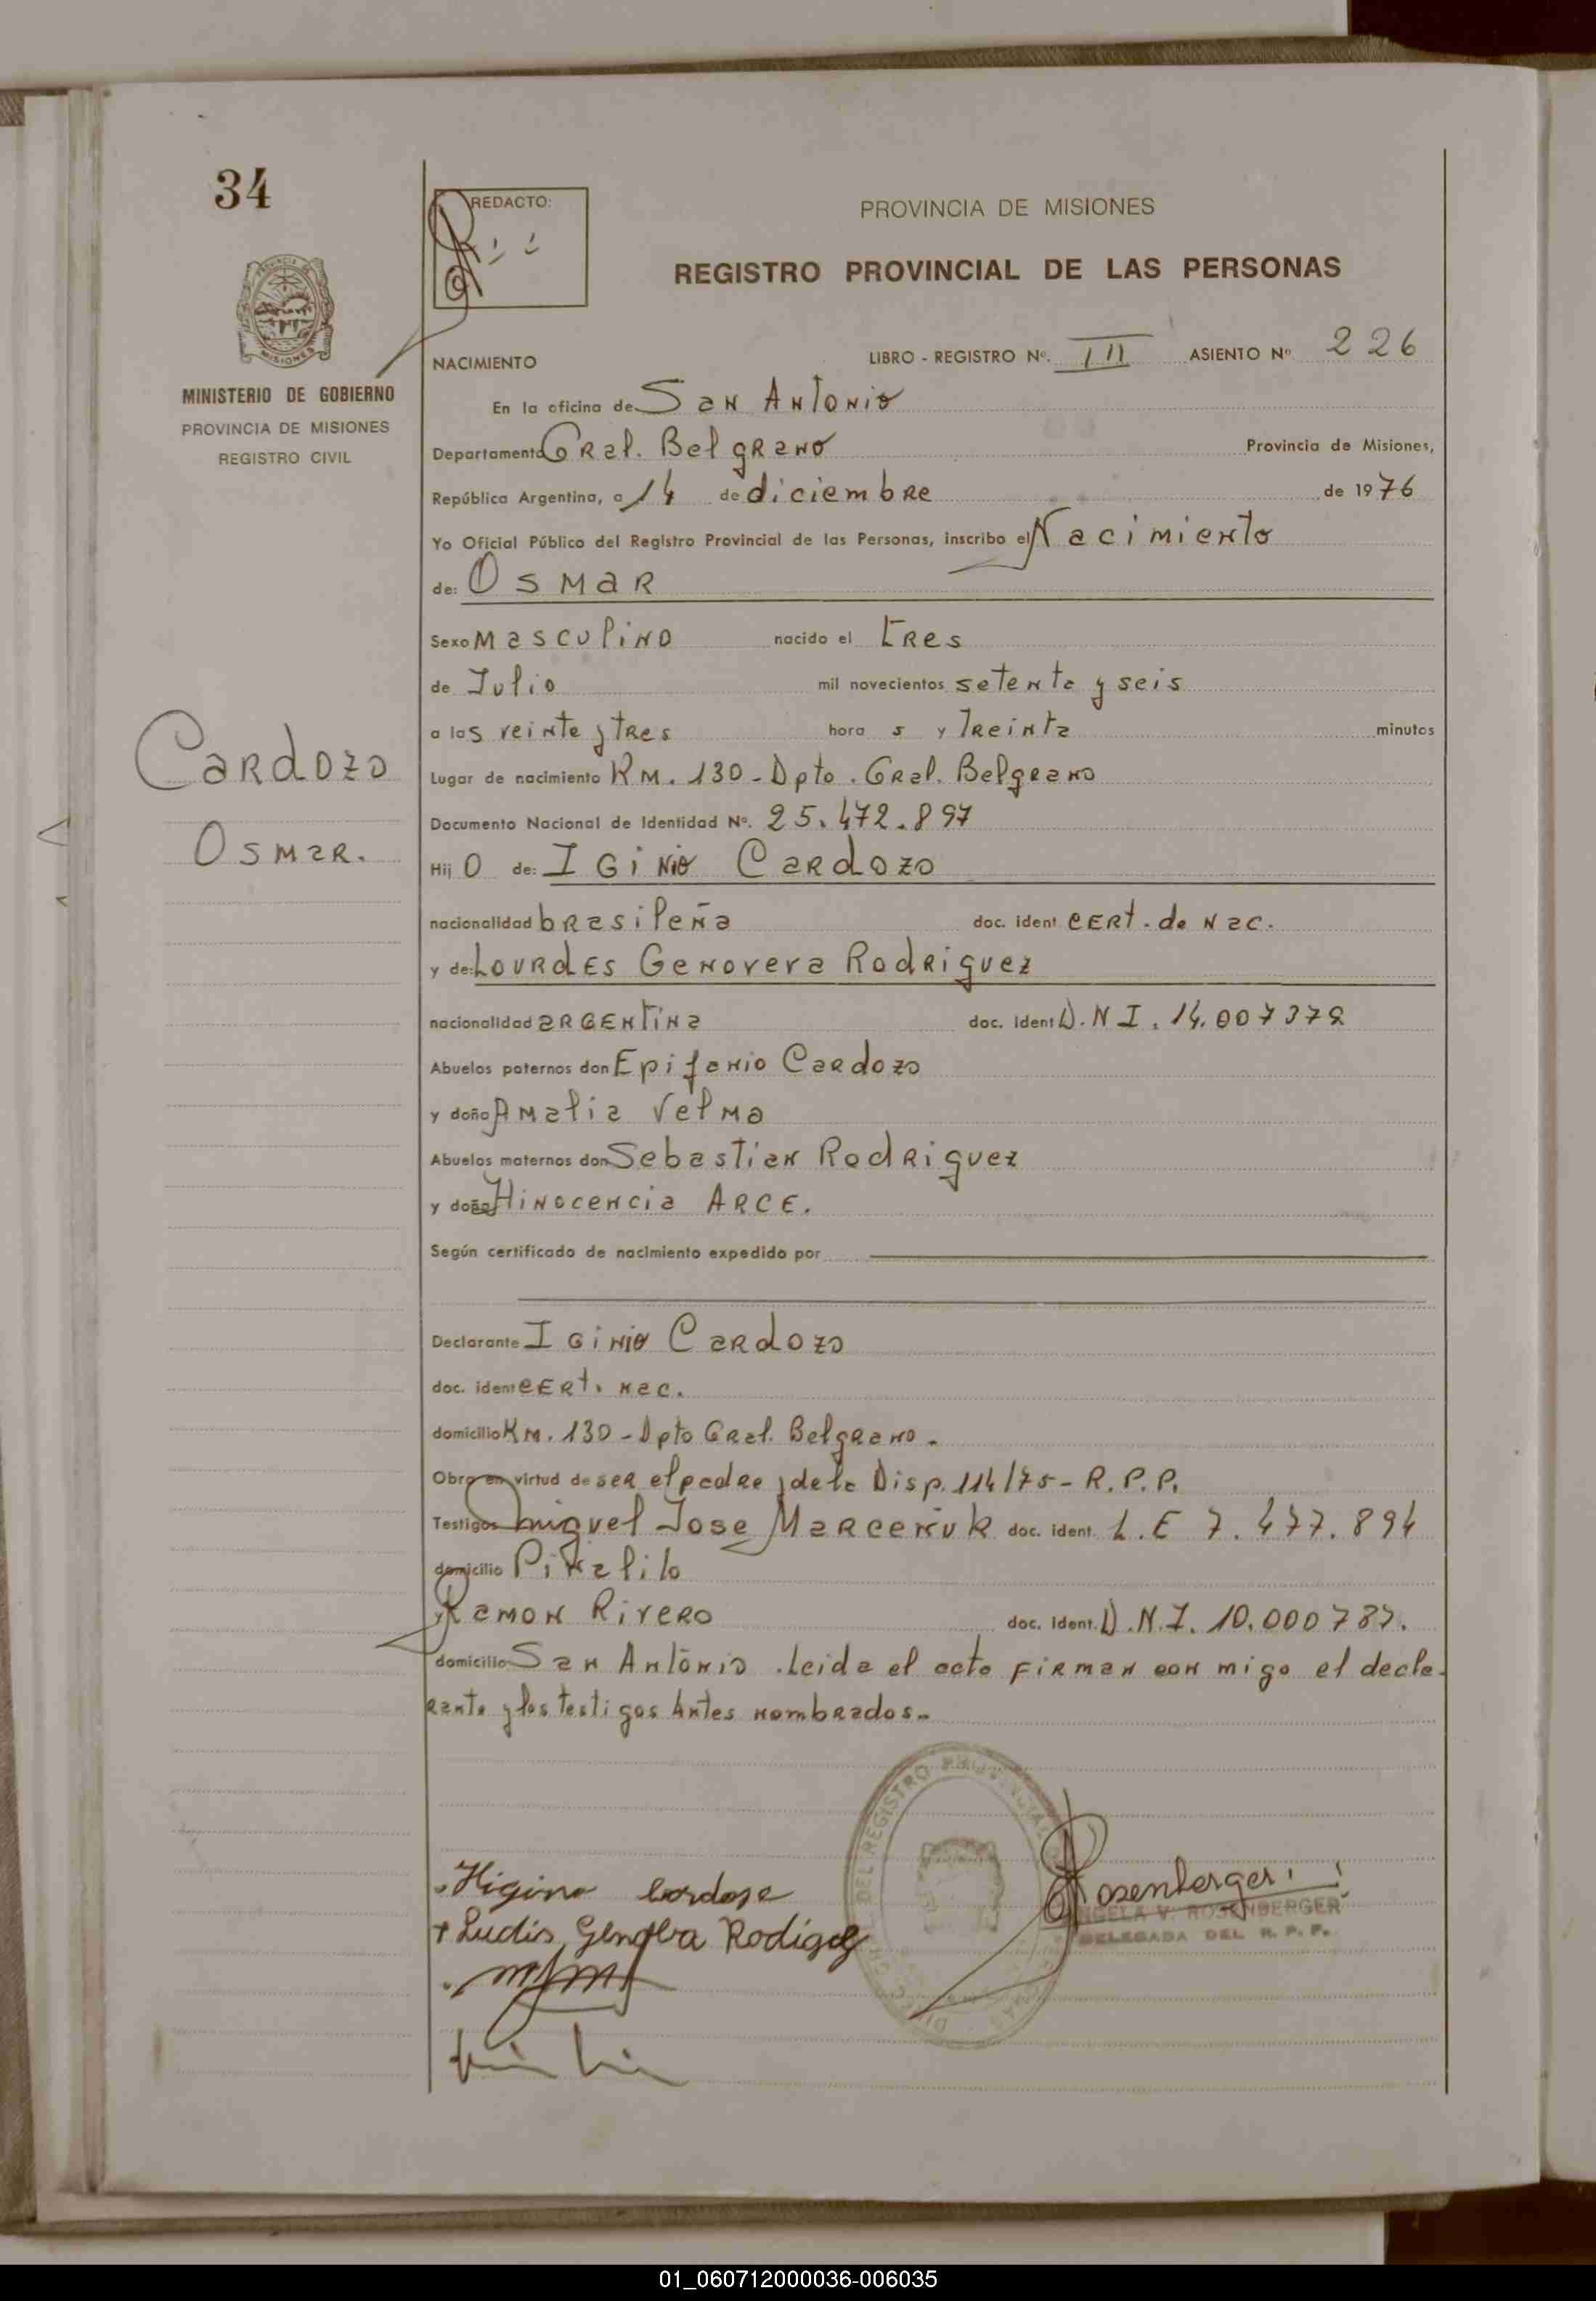 34
REDACTO:
PROVINCIA DE MISIONES
REGISTRO PROVINCIAL DE LAS PERSONAS
MINISTERIO DE GOBIERNO
PROVINCIA DE MISIONES
REGISTRO CIVIL
NACIMIENTO LIBRO - REGISTRO Nº. III ASIENTO Nº 226
En la oficina de San Antonio
Departamento Gral. Belgrano Provincia de Misiones,
República Argentina, a 14 de diciembre de 1976
Yo Oficial Público del Registro Provincial de las Personas, inscribo el Nacimiento
de: Osmar
Sexo masculino nacido el tres
de Julio mil novecientos setenta y seis
a las veinte y tres hora s y Treinta minutos
Cardozo
Osmar.
Lugar de nacimiento Km. 130 - Dpto. Gral. Belgrano
Documento Nacional de Identidad Nº. 25.472.897
Hij o de: Iginio Cardozo
nacionalidad brasileña doc. ident cert. de Nac.
y de: Lourdes Genoveva Rodriguez
nacionalidad argentina doc. ident D.N.I. 14.007378
Abuelos paternos don Epifanio Cardozo
y doña Amalia Velma
Abuelos maternos don Sebastian Rodriguez
y doña Hinocencia Arce.
Según certificado de nacimiento expedido por
Declarante Iginio Cardozo
doc. ident cert. nac.
domicilio Km. 130 - Dpto Gral. Belgrano.
Obra en virtud de ser el padre y de la Disp. 114/75 - R.P.P.
Testigos Miguel Jose Marceñuk doc. ident. L.E 7.477.894
domicilio Piñalito
y Ramon Rivero doc. ident. D.N.I. 10.000787.
domicilio San Antonio. Leida el acta firman con migo el decla-
rante y los testigos Antes nombrados.-
Higino Cardoza
Ludis Genoba Rodigez
Rosenberger
ANGELA V. ROSENBERGER
DELEGADA DEL R. P. P.
01_060712000036-006035